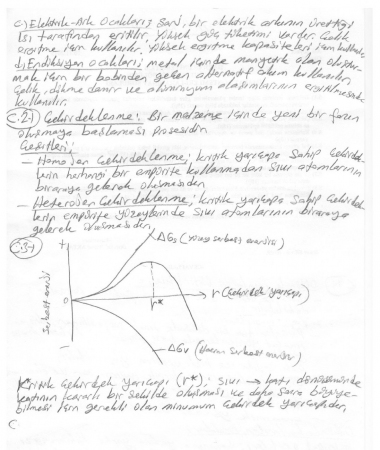 c) Elektrik-Ark Ocakları; Şarj, bir elektrik arkının ürettiği
ısı tarafından eritilir. Yüksek güç tüketimi vardır. Çelik
ergitme için kullanılır. Yüksek ergitme kapasiteleri için kullanılır.
d) Endüksiyon ocakları; metal içinde manyetik alan oluştur-
mak için bir bobinden geçen alternatif akım kullanılır.
Çelik, dökme demir ve alüminyum alaşımlarının ergitilmesinde
kullanılır.
C.2-) Çekirdeklenme: Bir malzeme içinde yeni bir fazın
oluşmaya başlaması prosesidir.
Çeşitleri;
- Homojen Çekirdeklenme; kritik yarıçapa sahip çekirdek-
lerin herhangi bir empürite kullanmadan sıvı atamlarının
biraraya gelerek oluşmasıdır.
- Heterojen Çekirdeklenme; kritik yarıçapa sahip çekirdek-
lerin empürite yüzeylerinde sıvı atamlarının biraraya
gelerek oluşmasıdır.
C.3-)
+
ΔGs (yüzey serbest enerjisi)
Serbest enerji
0
r*
r (Çekirdek yarıçapı)
-
ΔGv (Hacim serbest enerjisi)
Kritik Çekirdek yarıçapı (r*); sıvı → katı dönüşümünde
katının kararlı bir şekilde oluşması ve daha sonra büyüye-
bilmesi için gerekli olan minumum çekirdek yarıçapıdır.
C